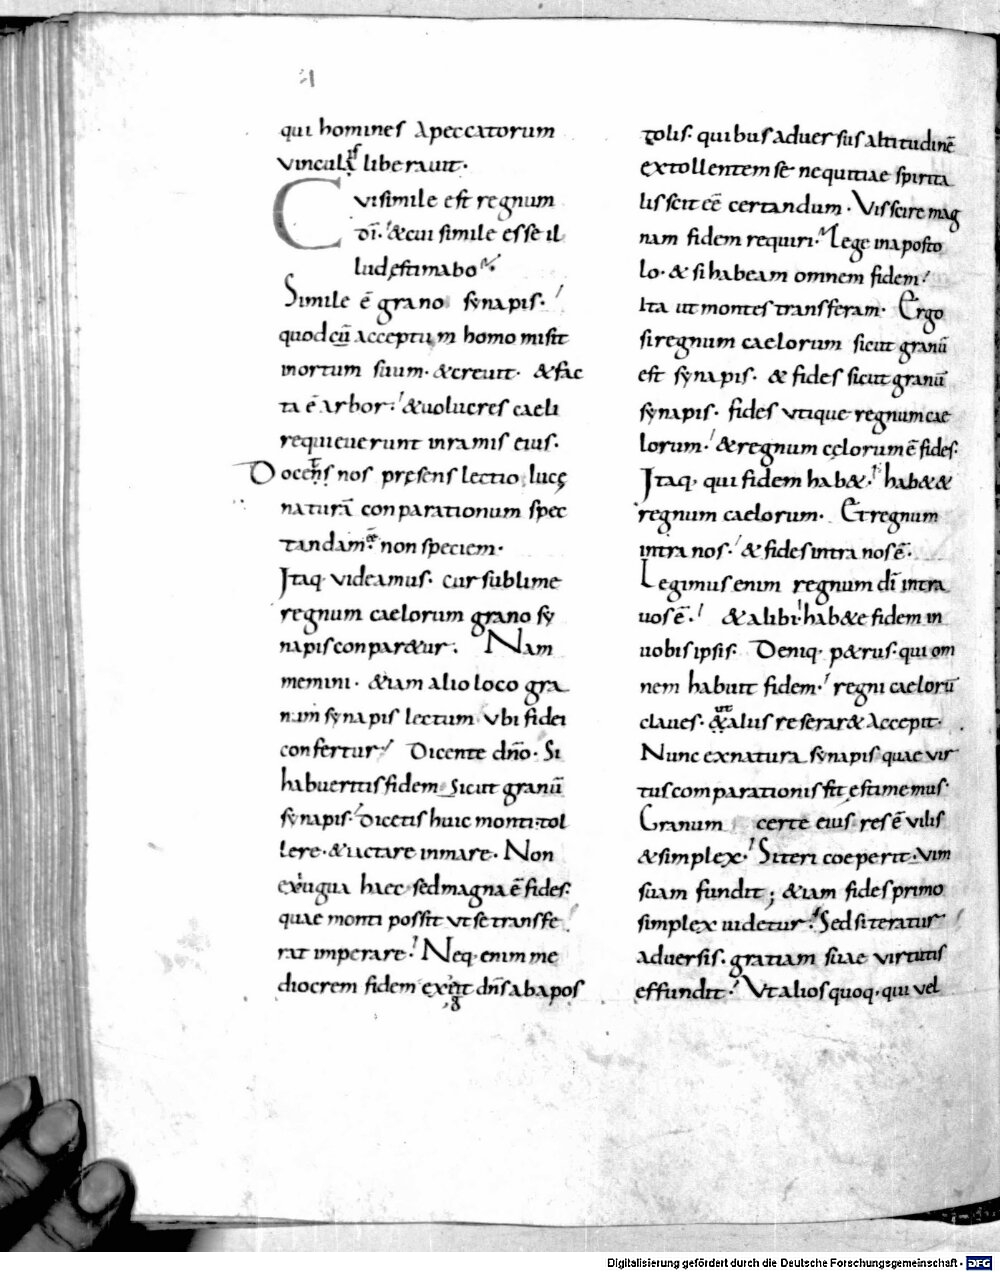 qui homines apeccatorum
vinculis liberauit.
Cvisimile est regnum
dī. &cui simile esse il
lud ęstimabo
Simile ē grano synapis.
quod cū acceptum homo misit
inortum suum. &creuit. &fac
ta ē arbor. &uolucres caeli
requieuerunt inramis eius.
Docens nos pręsens lectio lucę
naturā conparationum spec
tandam ēē non speciem.
Itaq· videamus. cur sublime
regnum caelorum grano sy
napis conpar&ur. Nam
memini. &iam alio loco gra
num synapis lectum vbi fidei
confertur. Dicente dn̄o. Si
habueritis fidem sicut granū
synapis. dicetis huic monti. tol
lere. &iactare inmare. Non
exigua haec sed magna ē fides.
quae monti possit vt se transfe
rat imperare. Neq· enim me
diocrem fidem exigit dn̄s abapos
tolis. quibus aduersus altitudinē
extollentem se nequitiae spirita
lis scit eē certandum. Vis scire mag
nam fidem requiri. Lege inaposto
lo. & si habeam omnem fidem.
Ita ut montes transferam. Ergo
si regnum caelorum sicut granū
est synapis. & fides sicut granū
synapis. fides vtique regnum cae
lorum. &regnum cęlorum ē fides.
Itaq· qui fidem hab&. hab&&
regnum caelorum. Et regnum
intra nos. & fides intra nos ē.
Legimus enim regnum dī intra
uos ē. &alibi. hab&e fidem in
uobis ipsis. Deniq· p&rus. qui om
nem habuit fidem. regni caelorū
claues. ut &aliis reserar& accepit.
Nunc exnatura synapis quae vir
tus comparationis sit ęstimemus.
Granum certe eius res ē vilis
&simplex. Si teri coeperit. vim
suam fundit; &iam fides primo
simplex uidetur. Sed si teratur
aduersis. gratiam suae virtutis
effundit. Vt alios quoq· qui vel
Digitalisierung gefördert durch die Deutsche Forschungsgemeinschaft - DFG